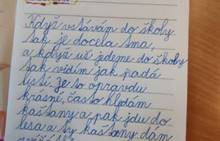 Když vstávám do školy
tak je docela tma,
a když už jdeme do školy
tak vidím jak padá
listí. je to opravdu
krásné, často hledám
kaštany a pak jdu do
lesa a ty kaštany dám